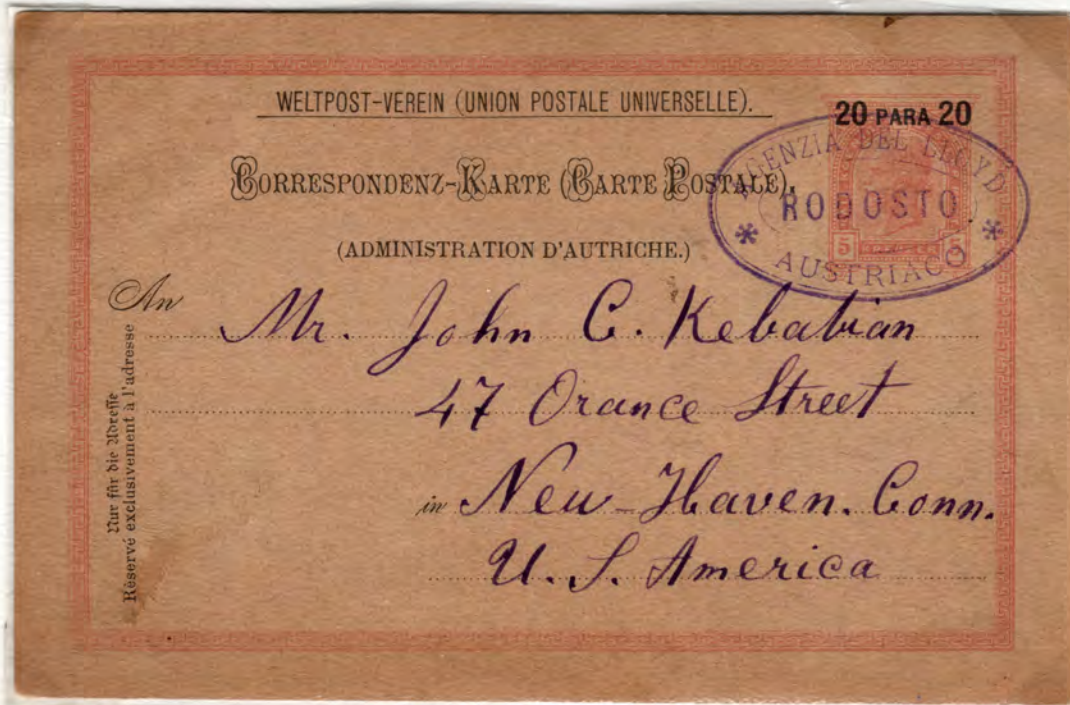 WELTPOST-VEREIN (UNION POSTALE UNIVERSELLE).
20 PARA 20
CORRESPONDENZ-KARTE (CARTE POSTALE).
AGENZIA DEL LLOYD
RODOSTO
AUSTRIACO
5 5
(ADMINISTRATION D'AUTRICHE.)
An
Mr. John C. Kebabian
47 Orance Street
in New-Haven. Conn.
U. S. America
Nur für die Adresse
Réservé exclusivement à l'adresse